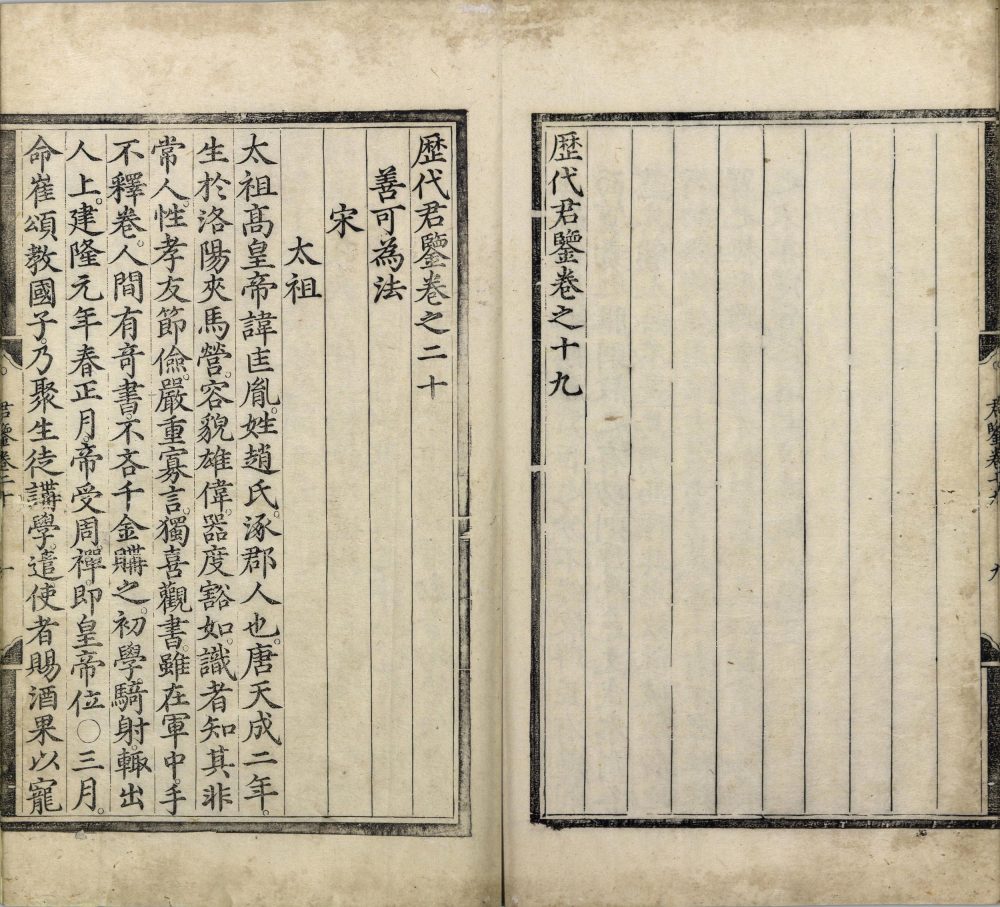 歷代君鑒卷之十九
君鑒卷十九
九
歷代君鑒卷之二十
善可為法
宋
太祖
太祖高皇帝諱匡胤。姓趙氏。涿郡人也。唐天成二年。
生於洛陽夾馬營。容貌雄偉。器度豁如。識者知其非
常人。性孝友節儉。嚴重寡言。獨喜觀書。雖在軍中。手
不釋卷。人間有奇書。不吝千金購之。初學騎射。輒出
人上。建隆元年春正月。帝受周禪。即皇帝位○三月。
命崔頌教國子。乃聚生徒講學。遣使者賜酒果以寵
君鑒卷二十
一